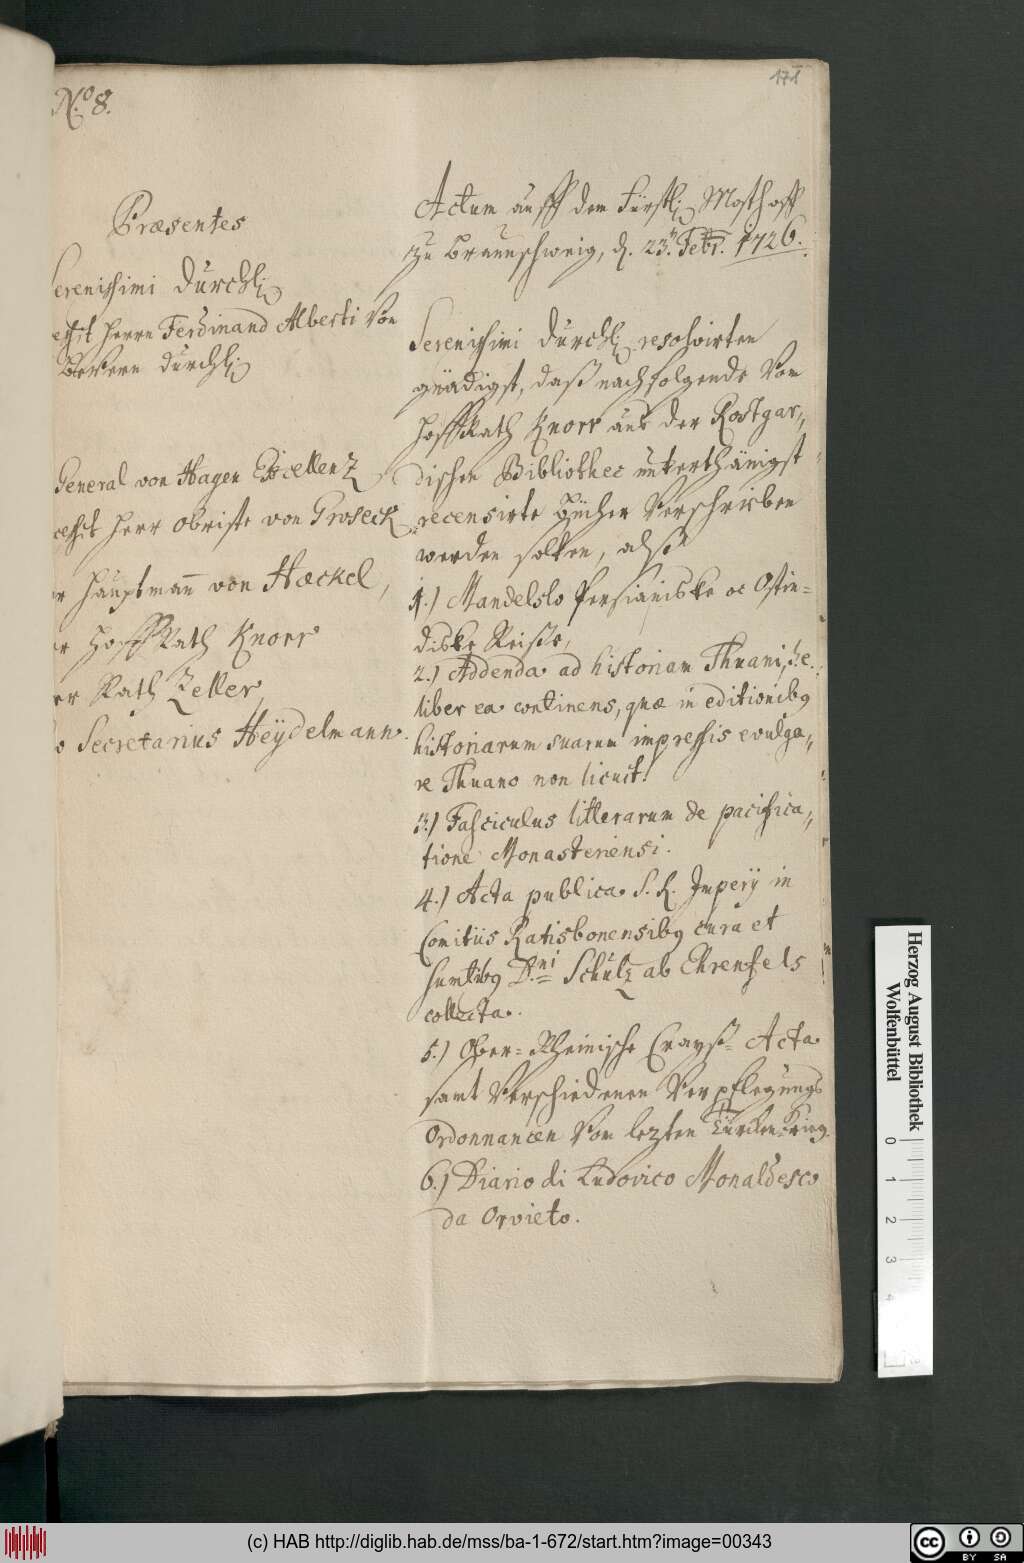 171
N.o 8.
Præsentes
Serenissimi Durchl.
Herrn Ferdinand Alberti von
Bevern Durchl.
General von Hagen Excellenz
Herr Obriste von Groseck
Hauptmann von Hæckel,
HoffRath Knorr
Rath Zeller,
Secretarius Heÿdelmann.
Actum auff dem Fürstl. Mosthoff
zu Braunschweig, d. 23.t Febr. 1726.
Serenissimi Durchl. resolvirten
gnädigst, daß nachfolgende von
HoffRath Knorr aus der Rostgar„
dischen Bibliothec unterthänigst
recensirte Bücher verschrieben
werden solten, alß
1.) Mandelslo Persianiske oc Ostin=
diske Reise,
2.) Addenda ad historiam Thuani, h.e.
liber ea continens, quæ in editionibꝯ
historiarum suarum impressis evulga„
re Thuano non licuit.
3.) Fasciculus litterarum de pacifica„
tione Monasteriensi.
4.) Acta publica S. R. Imperÿ in
Comitiis Ratisbonensibꝯ cura et
sumtibꝯ D.ni Schulz ab Ehrenfels
collecta.
5.) Ober=Rheinische Crayß=Acta
samt verschiedenen Verpflegungs
Ordonnancen vom lezten Türcken=Krieg.
6.) Diario di Ludovico Monaldesco
da Orvieto.
Herzog August Bibliothek
Wolfenbüttel
0
1
2
3
4
(c) HAB http://diglib.hab.de/mss/ba-1-672/start.htm?image=00343
cc BY SA